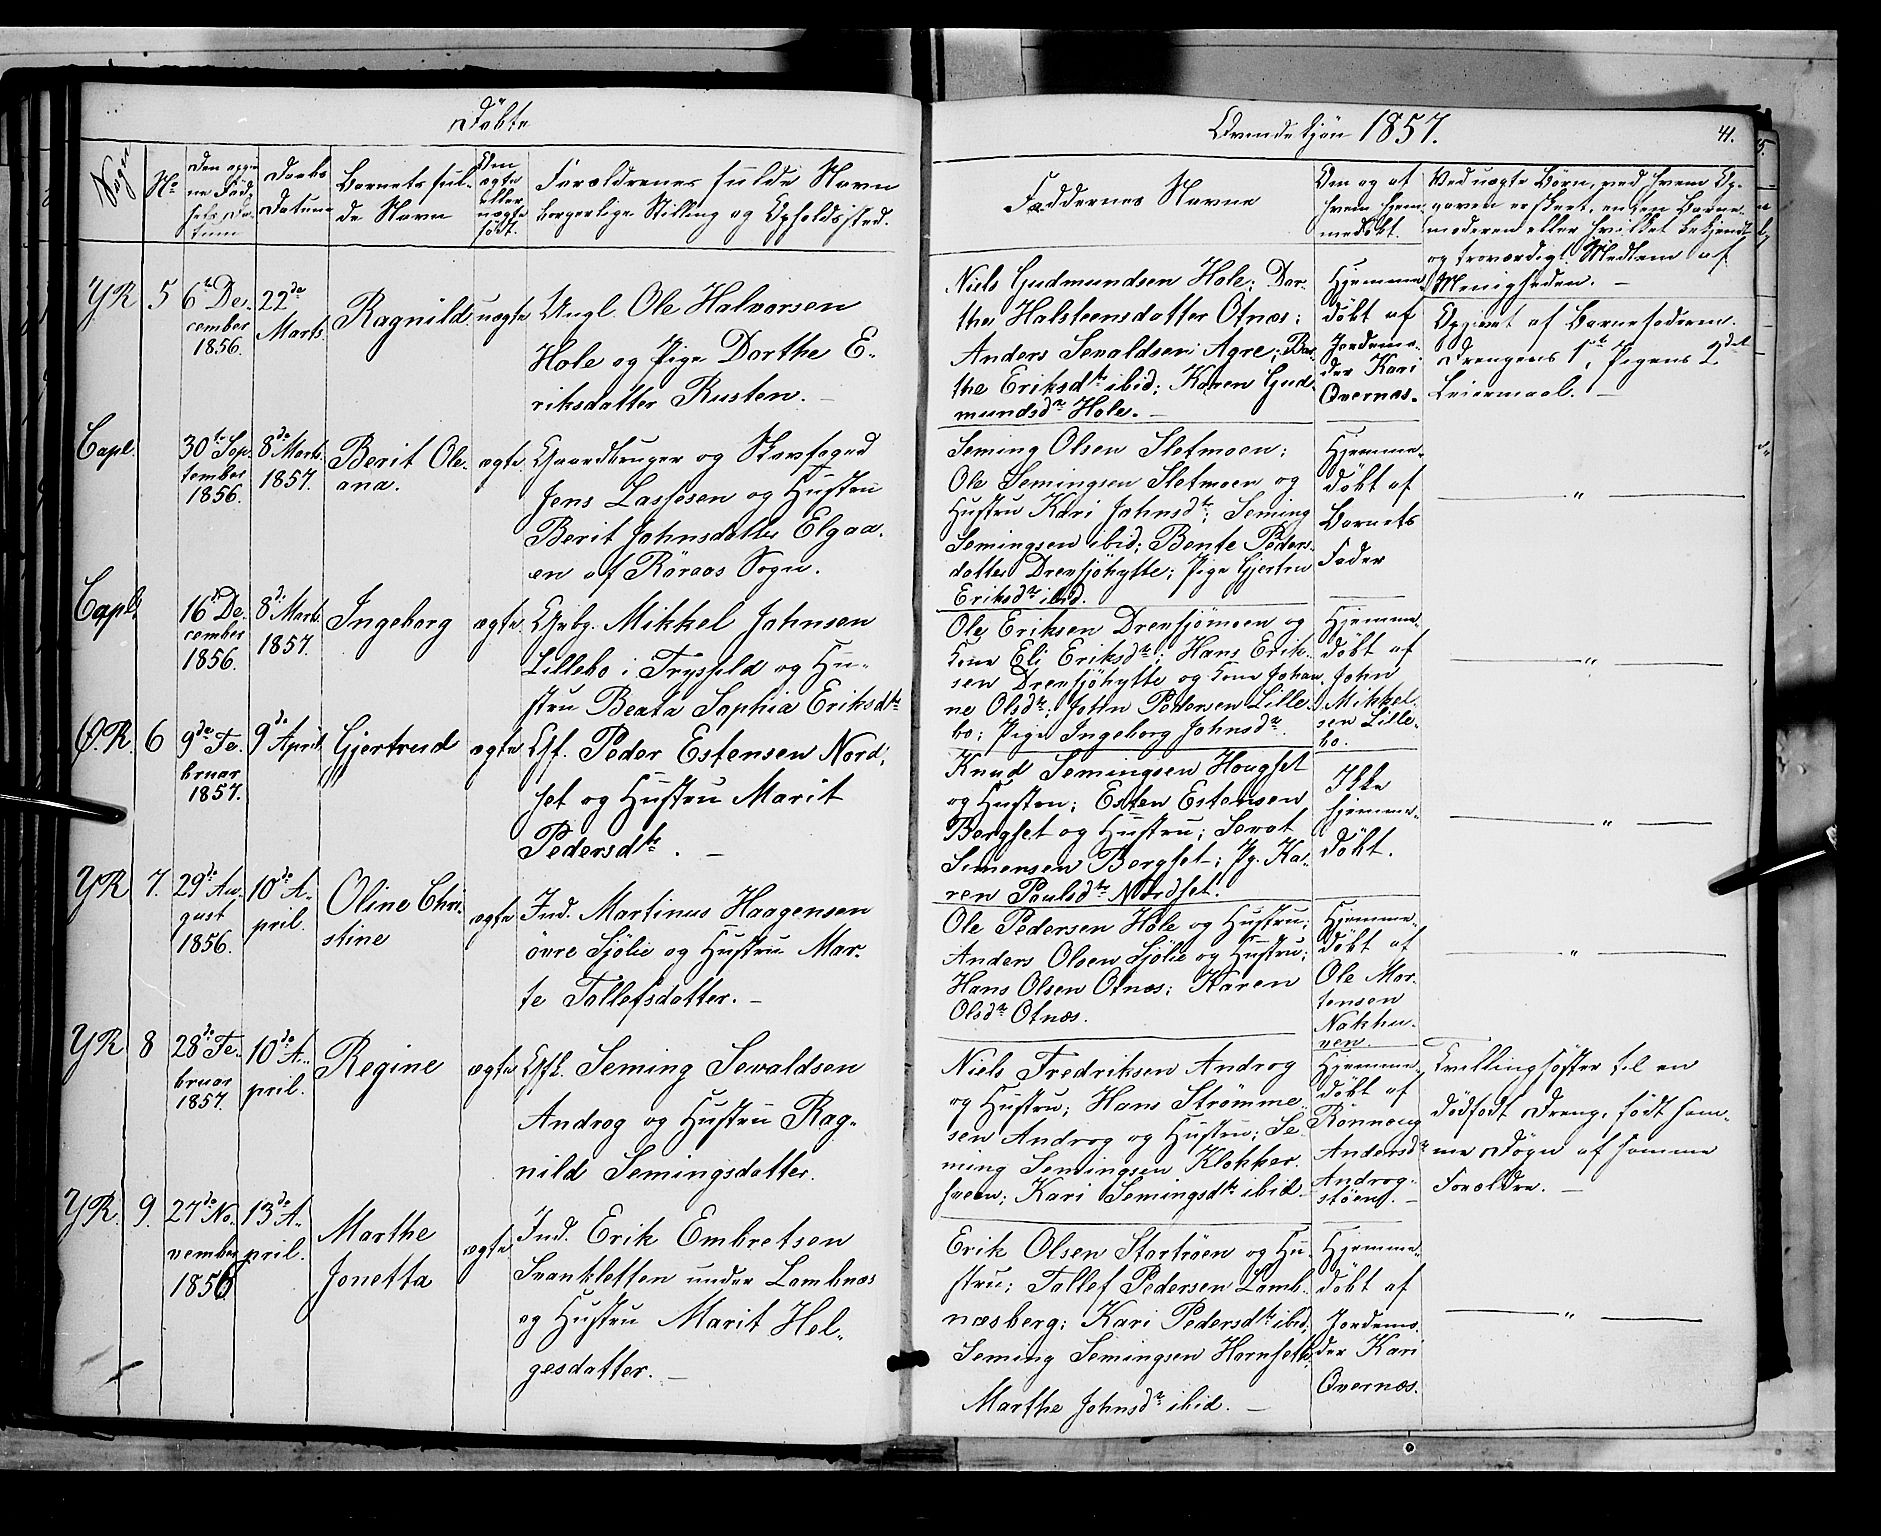 Döbte
Qvindekjön 1857.
41.
Sogn
No
Den opgiv-
ne Föd-
sels Da-
tum
Daabs
Datum
Barnets ful-
de Navn
Om
ægte
eller
uægte
födt.
Forældrenes fulde Navn
borgerlige Stilling og Opholdssted.
Faddernes Navne
Om og af
hvem hjem-
medöbt.
Ved uægte Börn, ved hvem Op-
gaven er skeet, enten Barne-
moderen eller hvilket bekjendt
og troværdigt Medlem af
Menigheden. —
YR
5
6te De-
cember
1856.
22de
Marts.
Ragnild
uægte
Ungk. Ole Halvorsen
Hole og Pige Dorthe E-
riksdatter Rusten. —
Niels Gudmundsen Hole; Dor-
the Halsteensdatter Otnæs;
Anders Sevaldsen Agre; Dor-
the Eriksdtr ibid; Karen Gud-
mundsdr Hole. —
Hjemme-
döbt af
Jordemo-
der Kari
Qvernæs.
Opgivet af Barnefaderen.
Drengens 1ste, Pigens 2det
Leiermaal. —
Capl.
30te Sep-
tember
1856.
8de Marts
1857.
Berit Ole-
ana.
ægte
Gaardbruger og Skovfoged
Jens Lassesen og Hustru
Berit Johnsdatter Elgaa-
en af Röraas Sogn.
Seming Olsen Sletmoen;
Ole Semingsen Sletmoen og
Hustru Kari Johnsdtr; Seming
Semingsen ibid; Bente Peders-
datter Drevsjöhytte; Pige Gjertru
Eriksdr ibid.
Hjemme-
döbt af
Barnets
Fader
"
Capl.
16de De-
cember
1856.
8de Marts
1857.
Ingeborg
ægte
Grbg. Mikkel Johnsen
Lillebo i Trysild og Hu-
stru Beata Sophia Eriksdtr
Ole Eriksen Drevsjömoen og
Kone Eli Eriksdtr; Hans Erik-
sen Drevsjöhytte og Kone Johan-
ne Olsdr; John Pedersen Lille-
bo; Pige Ingeborg Johnsdr.
Hjemme-
döbt af
John
Mikkel-
sen Lille-
bo.
"
Ø.R.
6
9de Fe-
bruar
1857.
9de April
Gjertrud
ægte
Gf. Peder Estensen Nord-
set og Hustru Marit
Pedersdtr. —
Knud Semingsen Hougset
og Hustru; Esten Estensen
Bergset og Hustru; Sevat
Simensen Bergset; Pg. Ka-
ren Paulsdtr Nordset.
Ikke
hjemme-
döbt.
"
YR
7.
29de Au-
gust
1856.
10de A-
pril.
Oline Chri-
stine
ægte
Ind. Martinus Haagensen
övre Sjölie og Hustru Mar-
te Tollefsdatter. —
Ole Pedersen Hole og Hustru;
Anders Olsen Sjölie og Hustru;
Hans Olsen Otnæs; Karen
Olsdr Otnæs.
Hjemme-
döbt af
Ole Mor-
tensen
Nakhu-
ven.
"
YR
8
28de Fe-
bruar
1857.
10de A-
pril.
Regine
ægte
Gfk. Seming Sevaldsen
Androg og Hustru Rag-
nild Semingsdatter.
Niels Fredriksen Androg
og Hustru; Hans Strömme-
sen Androg og Hustru; Se-
ming Semingsen Klokker-
sveen; Kari Semingsdtr ibid.
Hjemme-
döbt af
Rönnoug
Andersdr
Androg-
stöen. —
Tvillingsöster til en
dödfödt Dreng, födt sam-
me Dögn af samme
Forældre. —
YR.
9.
27de No-
vember
1856
13de A-
pril.
Marthe
Jonetta
ægte
Ind. Erik Embretsen
Svankletten under Lombnæs
og Hustru Marit Hel-
gesdatter. —
Erik Olsen Stortröen og Hu-
stru; Tollef Pedersen Lomb-
næsberg; Kari Pedersdtr ibid;
Seming Semingsen Hornset;
Marthe Johnsdr ibid. —
Hjemme-
döbt af
Jordemo-
der Kari
Qvernæs.
"